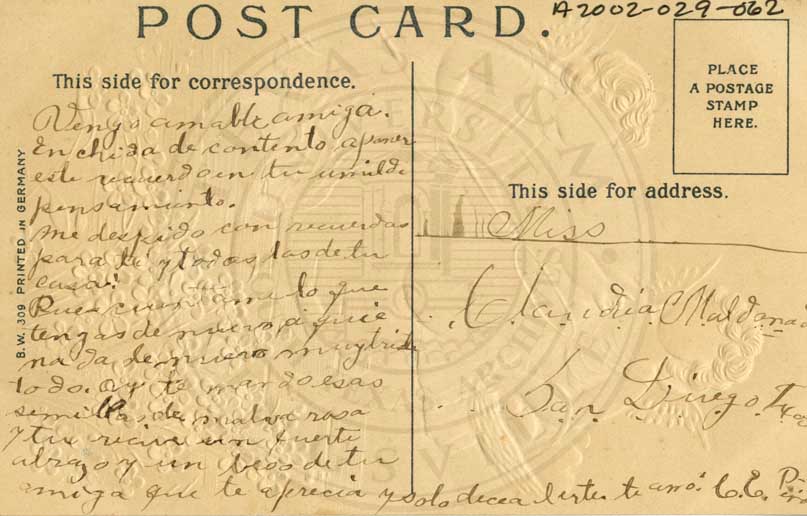 A2002-029-062
POST CARD.
This side for correspondence.
PLACE
A POSTAGE
STAMP
HERE.
This side for address.
B.W. 309 PRINTED IN GERMANY
Vengo amable amiga.
Enchida de contento a poner
este recuerdo en tu umilde
pensamiento.
me despido con recuerdos
para ti y todos los de tu
casa!
Pues cuentame lo que
tengas de nuevo, aqui
nada de nuevo muy triste
todo. oy te mando esas
semillas de malva rosa
y tu recive un fuerte
abrazo y un beso de tu
amiga que te aprecia y solo decea
Miss
Claudia Maldonado
San Diego Tex